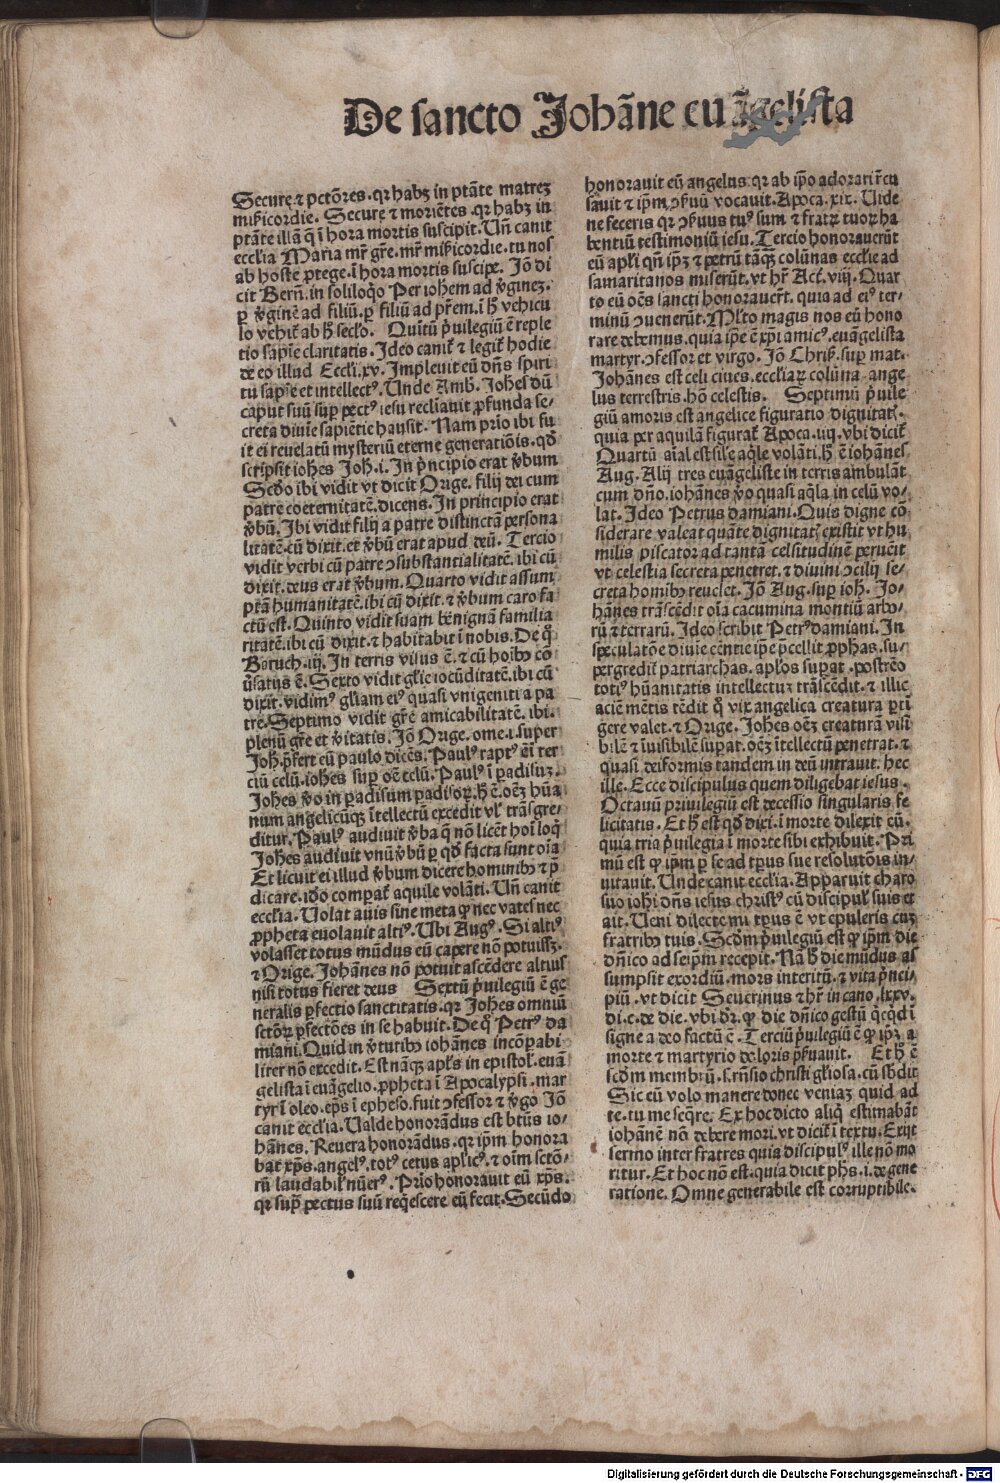 De sancto Johāne euāgelista
Secure ⁊ pctōres. qꝛ habꝫ in ptāte matreꝫ
miẜicordie. Secure ⁊ moriētes. qꝛ habꝫ in
ptāte illā q̄ ī hora mortis suscipit. Uñ canit
eccl̓ia Maria mr̄ gr̄e. mr̄ miẜicordie. tu nos
ab hoste ꝓtege. ī hora mortis suscipe. Jō di
cit Berñ. in soliloq̓o Per iohem ad v̓gineꝫ.
ꝑ v̓ginē ad filiū. ꝑ filiū ad pr̄em. ī h̓ vehicu
lo vehit̃ ab h̓ secl̓o. Quītū p̓uilegiū ē reple
tio sapīe claritatis. Ideo canit̃ ⁊ legit̃ hodie
de eo illud Eccl̓i. xv. Impleuit eū dn̄s spiri
tu sapīe et intellectꝰ. Unde Amb. Johēs dū
caput suū suꝑ pectꝰ iesu recliauit ꝓfunda se-
creta diuie sapiētie hausit. Nam prīo ibi fu
it ei reuelatū mysteriū eterne generatiōis. qd̓
scripsit iohēs Joh. i. In p̓ncipio erat v̓bum
Scd̓o ibi vidit vt dicit Orige. filij dei cum
patre coeternitatē. dicens. In principio erat
v̓bū. Ibi vidit filij a patre distinctā persona
litatē. cū dixit. et v̓bū erat apud deū. Tercio
vidit verbi cū patre ↄsubstantialitatē. ibi cū
dixit. deus erat v̓bum. Quarto vidit assum
ptā humanitatē. ibi cū dixit. ⁊ v̓bum caro fa
ctū est. Quinto vidit suam benignā familia
ritatē. ibi cū dixit. ⁊ habitabit ī nobis. De q̊
Baruch. iij. In terris visus ē. ⁊ cū hoībꝰ cō
u̓satus ē. Sexto vidit gl̓ie iocūditatē. ibi cū
dixit. vidimꝰ gl̓iam eiꝰ quasi vnigeniti a pa
tre. Septimo vidit gr̄e amicabilitatē. ibi.
plenū gr̄e et v̓itatis. Jō Orige. ome. i. super
Joh. p̓fert eū paulo dicēs. Paulꝰ raptꝰ ēī ter
ciū celū. iohēs suꝑ oē celū. Paulꝰ ī padisuꝫ.
Johēs v̓o in padisum padisoꝝ. h̓ ē. oēꝫ hūa
num angelicūqꝫ ītellectū excedit vl̓ trāsgre-
ditur. Paulꝰ audiuit v̓ba q̄ nō licēt hoī loq̓
Johēs audiuit vnū v̓bū ꝑ qd̓ facta sunt oīa
Et licuit ei illud v̓bum dicere hominibꝰ ⁊ p̄
dicare. idō compat̃ aquile volāti. Uñ canit
eccl̓ia. Uolat auis sine meta qͦ nec vates nec
ꝓpheta euolauit altiꝰ. Ubi Augꝰ. Si altiꝰ
volasset totus mūdus eū capere nō potuissꝫ.
⁊ Orige. Johānes nō potuit ascēdere altius
nisi totus fieret deus Sextū p̓uilegiū ē ge
neralis ꝑfectio sanctitatis. qꝛ Johēs omniū
sctōꝝ ꝑfectōes in se habuit. De q̊ Petrꝰ da
miani. Quid in v̓tutibꝰ iohānes incōꝑabi
liter nō excedit. Est nāqꝫ apl̓s in epistol̓. euā
gelista ī euāgelio. ꝓpheta ī Apocalypsi. mar
tyr ī oleo. ep̄s ī epheso. fuit ↄfessor ⁊ v̓go Jō
canit eccl̓ia. Ualde honorādus est btūs io-
hānes. Reuera honorādus. qꝛ ip̄m honora
bat xp̄s. angelꝰ. totꝰ cetus apl̓icꝰ. ⁊ oīm sctō-
rū laudabil̓ nūerꝰ. Prīo honorauit eū xp̄s.
qꝛ suꝑ pectus suū reqescere eū fecit. Secūdo
honorauit eū angelus. qꝛ ab ip̄o adorari rēcu
sauit ⁊ ip̄m ↄẜuū vocauit. Apoca. xix. Uide
ne feceris qꝛ ↄẜuus tuꝰ sum ⁊ fratrꝫ tuoꝝ ha
bentiū testimoniū iesu. Tercio honorauerūt
eū apl̓i qñ ip̄ꝫ ⁊ petrū tāqꝫ colūnas eccl̓ie ad
samaritanos miserūt. vt hr̄ Act. viij. Quar
to eū oēs sancti honorauer̄t. quia ad eiꝰ ter-
minū ↄuenerūt. Ml̓to magis nos eū hono
rare debemus. quia ip̄e ē xp̄i amicꝰ. euāgelista
martyr. ↄfessor et virgo. Jō Chriẜ. suꝑ mat.
Johānes est celi ciues. eccl̓iaꝝ colūna. ange
lus terrestris. hō celestis. Septimū p̓uile
giū amoris est angelice figuratio dignitat̃.
quia per aquilā figurat̃ Apoca. iiij. vbi dicit̃
Quartū aīal est sil̓e aq̓le volāti. h̓ ē iohānes
Aug. Alij tres euāgeliste in terris ambulāt
cum dn̄o. iohānes v̓o quasi aq̓la in celū vo-
lat. Ideo Petrus damiani. Quis digne cō
siderare valeat quāte dignitatꝭ existit vt hu
milis piscator ad tantā celsitudinē peruēit
vt celestia secreta penetret. ⁊ diuini ↄcilij se-
creta homībꝰ reuelet. Jō Aug. suꝑ ioh. Jo-
hānes trāscēdit oīa cacumina montiū arbo-
rū ⁊ terrarū. Ideo scribit Petrꝰ damiani. In
speculatōe diuie eēntie ip̄e p̄cellit ꝓphas. su-
pergredit̃ patriarchas. apl̓os suꝑat. postrēo
totiꝰ hūanitatis intellectuꝫ trāscēdit. ⁊ illic
aciē mētis tēdit q̊ vix angelica creatura ꝑtī
gere valet. ⁊ Orige. Johēs oēꝫ creaturā visi
bilē ⁊ īuisibilē suꝑat. oēꝫ ītellectū penetrat. ⁊
quasi deiformis tandem in deū intrauit. hec
ille. Ecce discipulus quem diligebat iesus.
Octauū priuilegiū est decessio singularis fe
licitatis. Et h̓ est qd̓ dixi. ī morte dilexit eū.
quia tria p̓uilegia ī morte sibi exhibuit. Pri
mū est qͦ ip̄m ꝑ se ad tꝑus sue resolutōis in-
uitauit. Unde canit eccl̓ia. Apparuit charo
suo iohī dn̄s iesus christꝰ cū discipul̓ suis et
ait. Ueni dilecte mi tꝑus ē vt epuleris cuꝫ
fratribꝰ tuis. Scd̓m p̓uilegiū est qͦ ip̄m die
dn̄ico ad seip̄m recepit. Nā h̓ die mūdus as
sumpsit exordiū. mors interitū. ⁊ vita p̓nci-
piū. vt dicit Seuerinus ⁊ hr̄ in cano. lxxv.
di. c. de die. vbi dr̄. qͦ die dn̄ico gestū q̓cqd̓ ī
signe a deo factū ē. Terciū p̓uilegiū ē qͦ ip̄ꝫ a
morte ⁊ martyrio doloris p̓ẜuauit. Et h̓ ē
scd̓m membrū. s. rn̄sio christi gl̓iosa. cū sb̓dit
Sic eū volo manere donec veniaꝫ quid ad
te. tu me seq̓re. Ex hoc dicto aliq̓ estimabāt
iohānē nō debere mori. vt dicit̃ ī textu. Exijt
sermo inter fratres quia discipulꝰ ille nō mo
ritur. Et hoc nō est. quia dicit ph̄s. i. de gene
ratione. Omne generabile est corruptibile.
Digitalisierung gefördert durch die Deutsche Forschungsgemeinschaft - DFG